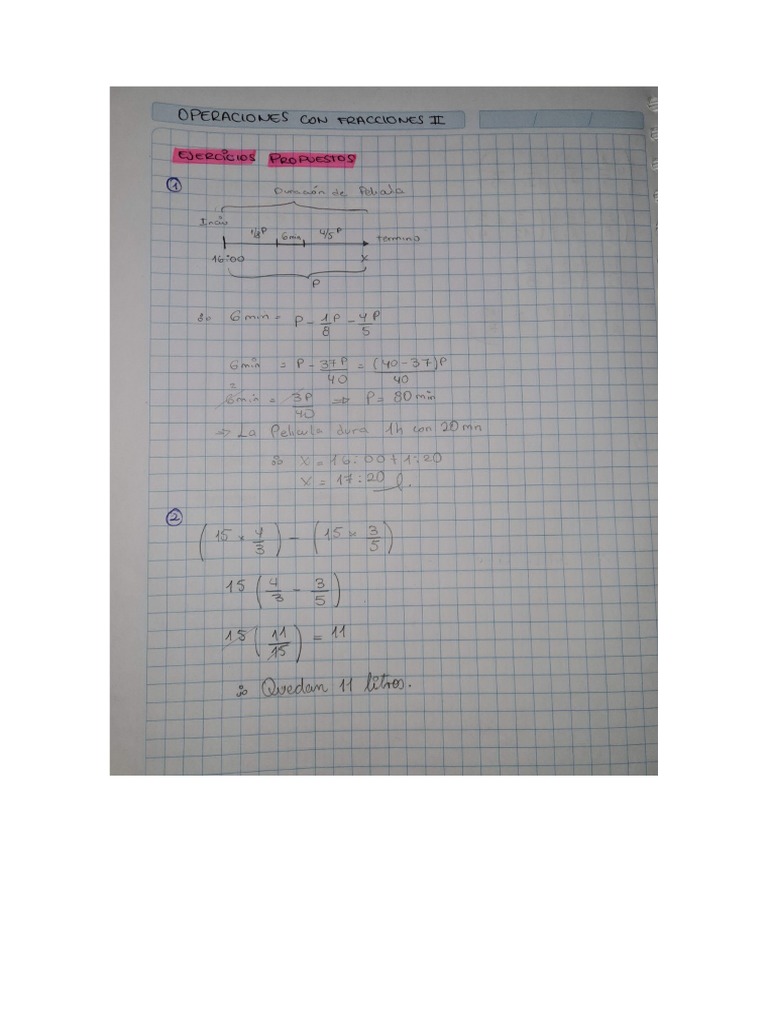 OPERACIONES CON FRACCIONES II
EJERCICIOS PROPUESTOS
1
Duración de Película
Inicio
1/8 P 6min 4/5 P término
16:00 x
P
∴ 6min = P - 1P/8 - 4P/5
6min = P - 37P/40 = (40-37)P/40
2
6min = 3P/40 ⇒ P = 80 min
⇒ La Película dura 1h con 20 mn
∴ x = 16:00 + 1:20
x = 17:20
2
(15 × 4/3) - (15 × 3/5)
15 (4/3 - 3/5)
15 (11/15) = 11
∴ Quedan 11 litros.